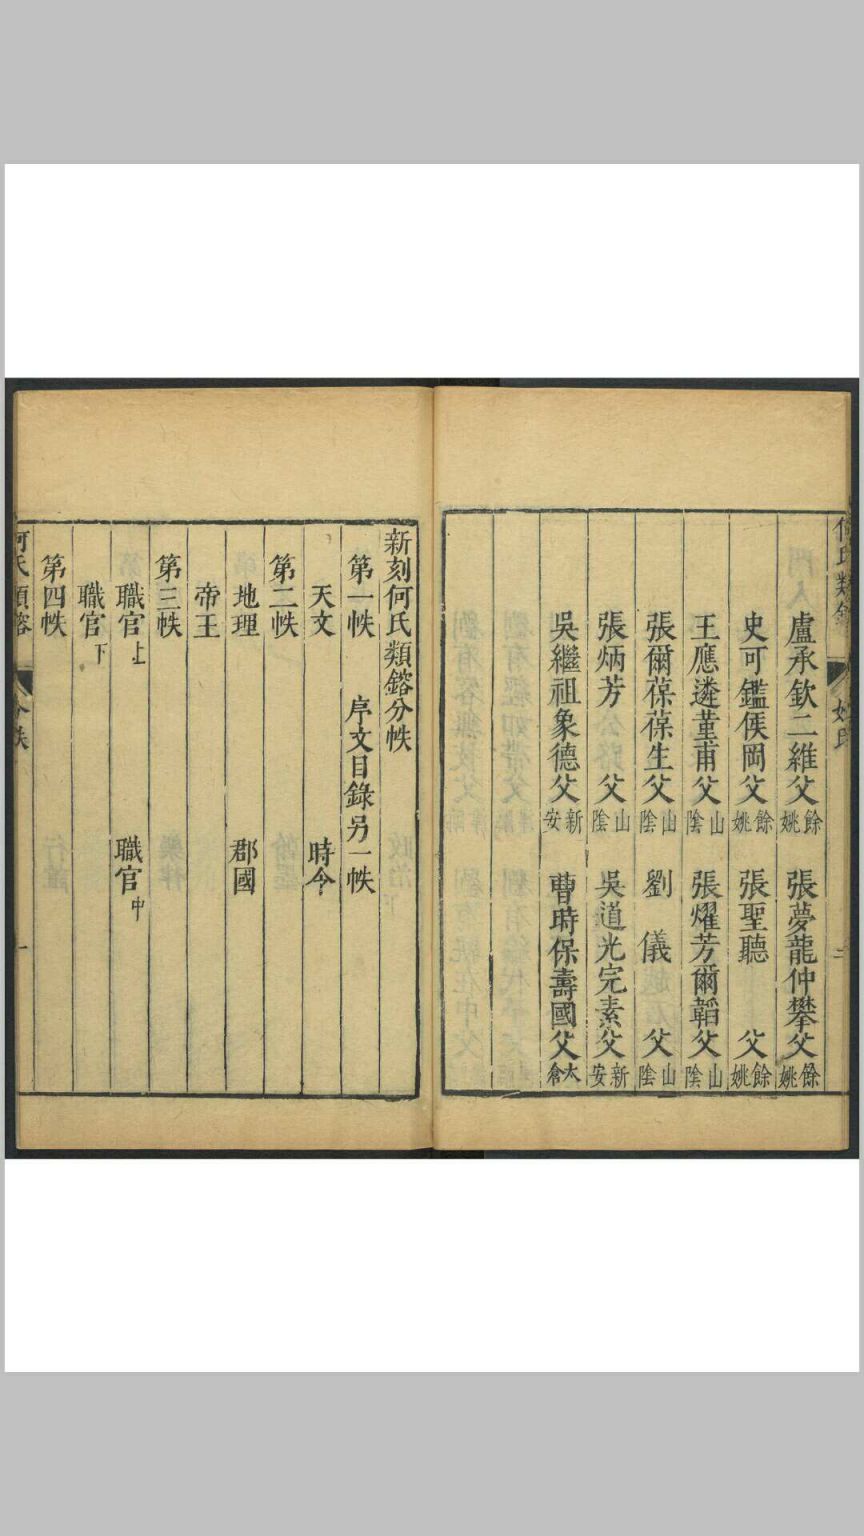 盧承欽二維父 餘姚 張夢龍仲攀父 餘姚
史可鑑侯岡父 餘姚 張聖聽 父 餘姚
王應遴董甫父 山陰 張燿芳爾韜父 山陰
張爾葆葆生父 山陰 劉 儀 父 山陰
張炳芳 父 山陰 吳道光完素父 新安
吳繼祖象德父 新安 曹時保壽國父 太倉
新刻何氏類鎔分帙
第一帙 序文目錄另一帙
天文 時令
第二帙
地理 郡國
帝王
第三帙
職官上 職官中
職官下
第四帙
何氏類鎔 分帙 一